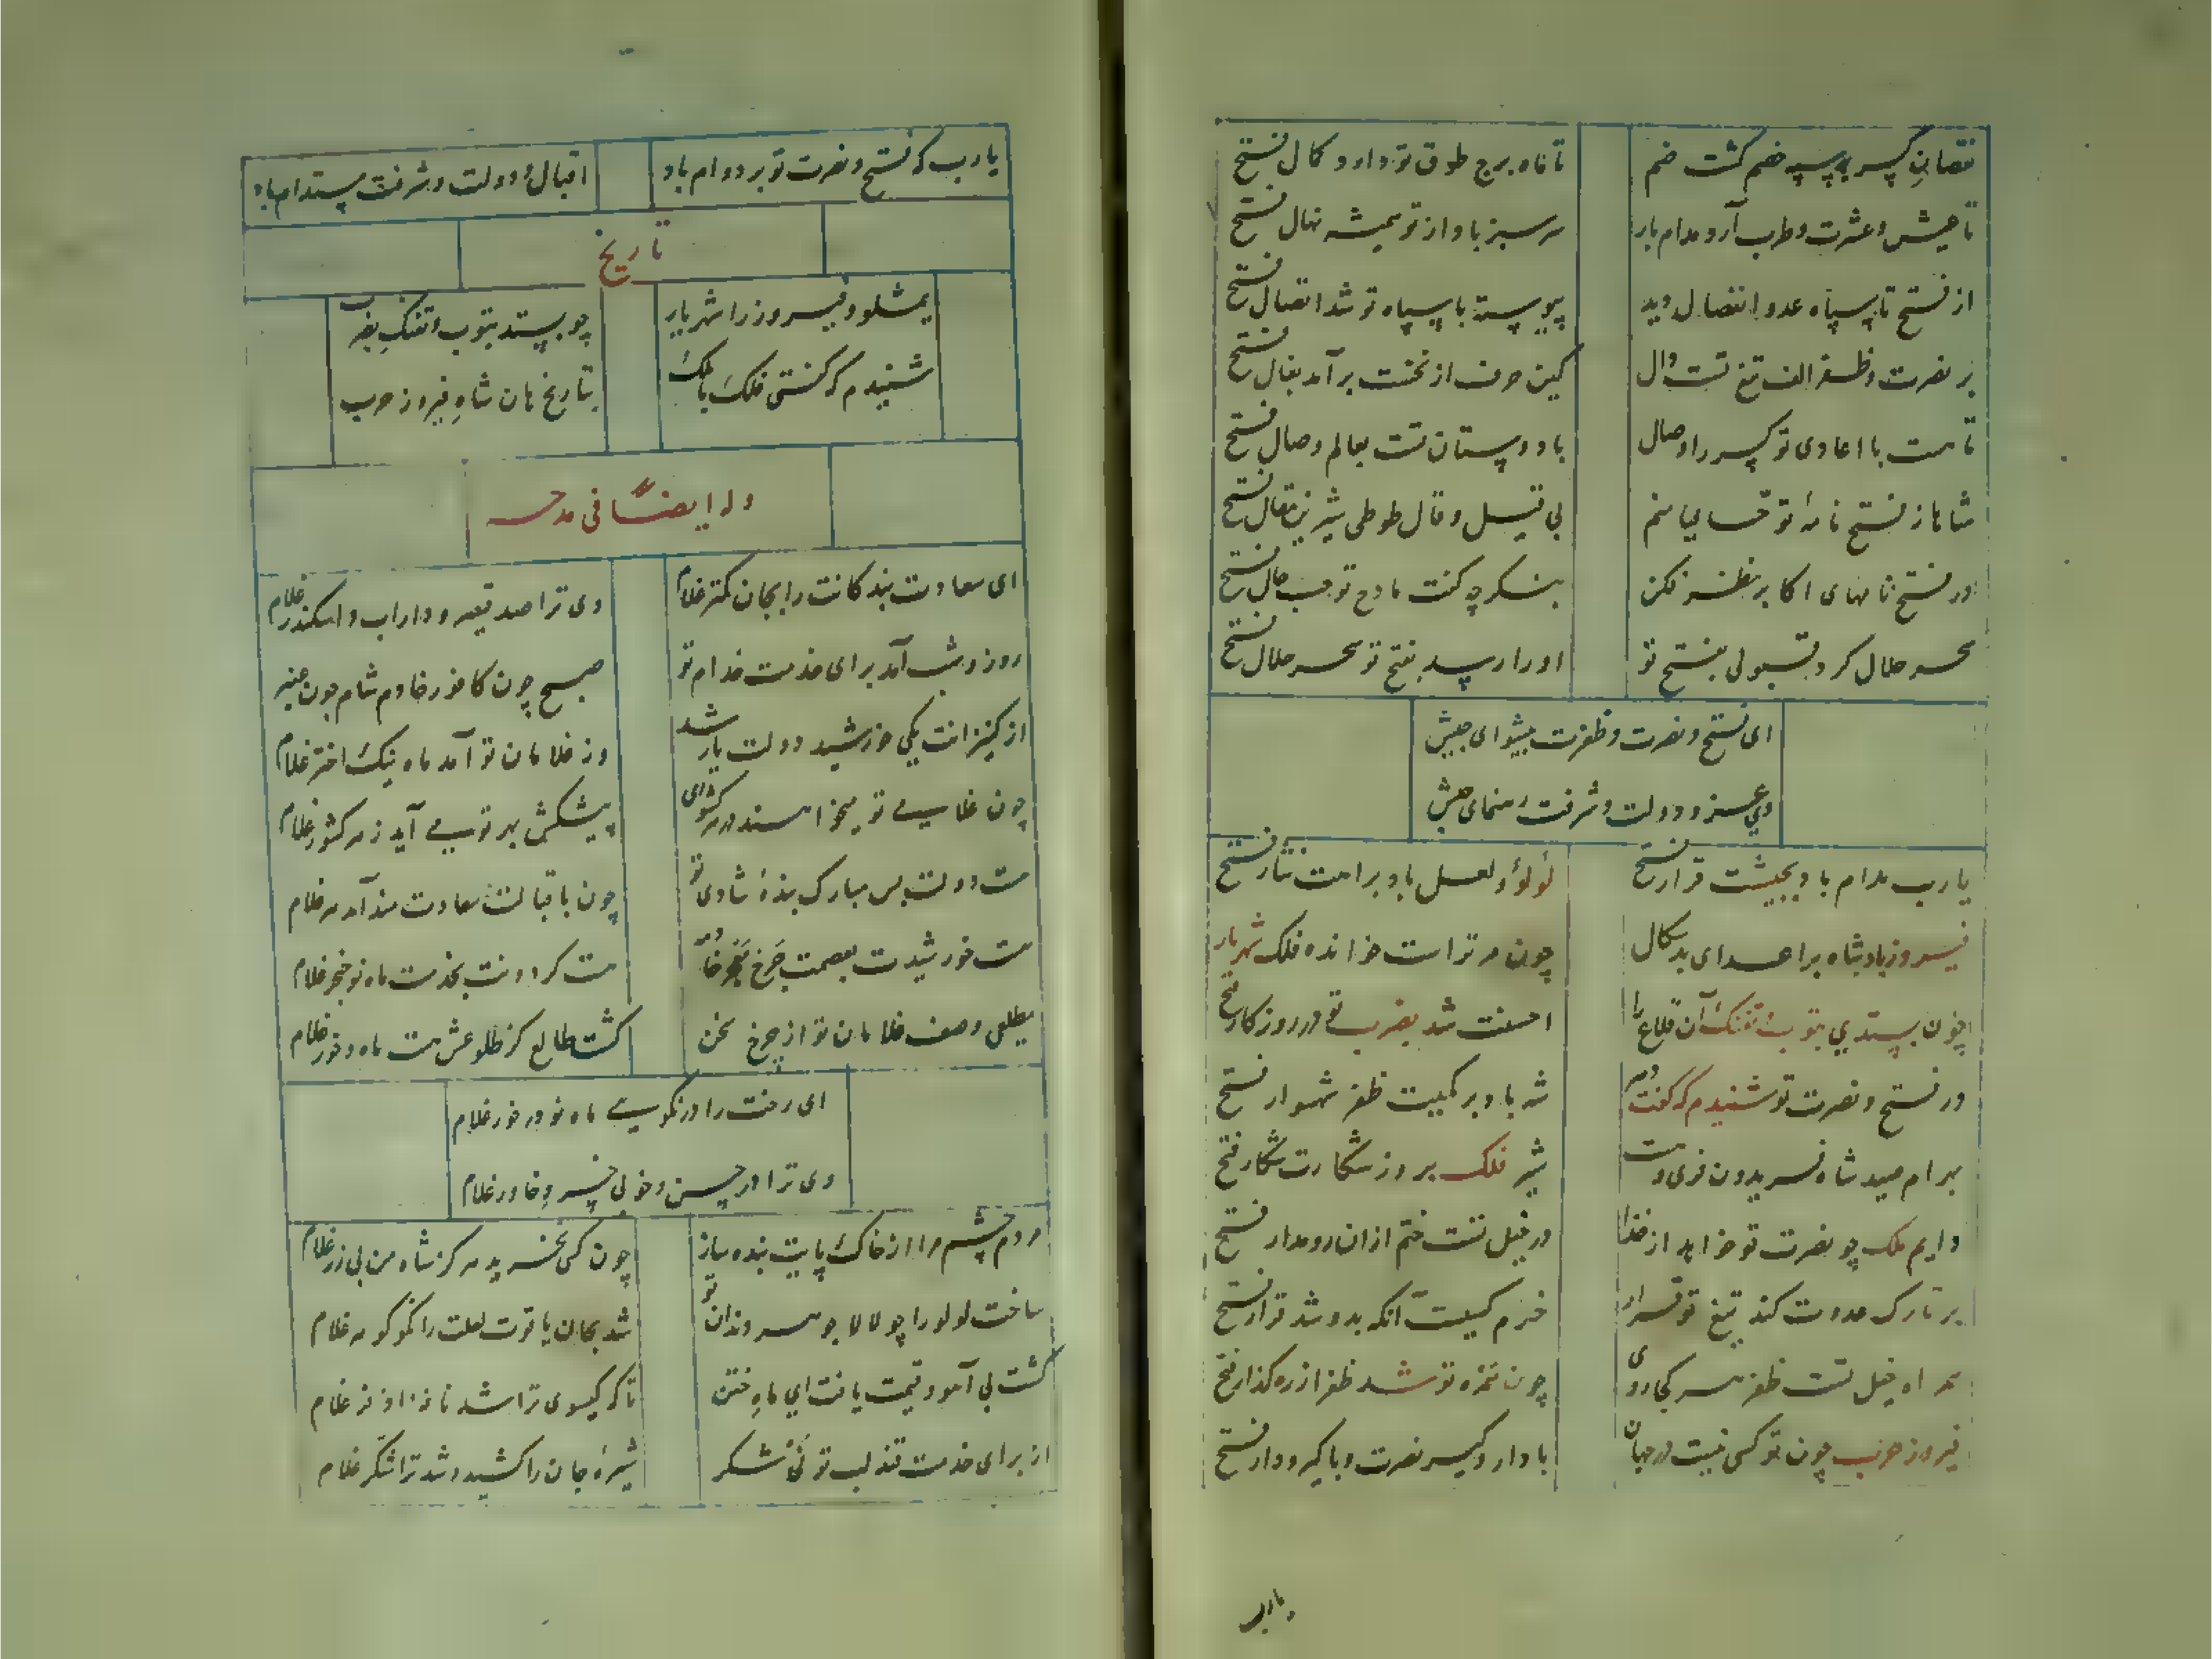 نقصان کسر به سپه خصم گشت ضم
تا ماه برج طوق تو دارد کمال فتح
تا عیش و عشرت و طرب آرد مدام بار
سرسبز باد از تو همیشه نهال فتح
از فتح تا سپاه عدو انفصال دید
پیوسته با سپاه تو شد اتصال فتح
بر نصرت و ظفر الف تیغ تست دال
کین حرف از نخست برآمد بفال فتح
تا هست با اعادی تو کسر را وصال
با دوستان تست بعالم وصال فتح
شاها ز فتح نامهٔ تو منم
بی قیل و قال طوطی شیرین مقال فتح
در فتح نامهای اکابر نظر فکن
بنگر چه گفت مادح تو حسب حال فتح
سحر حلال کرد قبولی بفتح تو
او را رسد بفتح تو سحر حلال فتح
ای فتح و نصرت و ظفرت پیشوای جیش
وی عز و دولت و شرفت رهنمای جیش
یارب مدام باد بجیشت قرار فتح
لؤلؤ و لعل باد براهت نثار فتح
فیروز باد شاه بر اعدای بدسکال
چون مر تراست خوانده فلک شهریار فتح
چون بستدی بتوپ و تفنگ آن قلاع را
احسنت شد بضرب تو در روزگار فتح
در فتح و نصرت تو شنیدم که گفت دهر
شه باد بر کمیت ظفر شهسوار فتح
بهرام صید شاه فریدون فری و هست
شیر فلک بروز شکارت شکار فتح
دایم ملک چو نصرت تو خواهد از خدا
در خیل تست ختم ازان رو مدار فتح
بر تارک عدوت کند تیغ تو قرار
خرم کسیست آنکه بدو شد قرار فتح
همراه خیل تست ظفر هر کجا روی
چون غمزه تو شد ظفر از رهگذار فتح
فیروز حرب چون تو کسی نیست در جهان
با دار و گیر نصرت و با گیر و دار فتح
یارب
یارب که فتح و نصرت تو بر دوام باد
اقبال و دولت و شرفت مستدام باد
تاریخ
یمشلو و فیروز را شهریار
چو بستد بتوپ و تفنگ بضرب
شنیدم که گفتی فلک با ملک
بتاریخ هان شاه فیروز حرب
وله ایضاً فی مدحه
ای سعادت بندگانت را بجان کمتر غلام
وی ترا صد قیصر و داراب و اسکندر غلام
روز و شب آمد برای خدمت خدام تو
صبح چون کافور خادم شام چون عنبر
از کنیزانت یکی خورشید دولت یار شد
وز غلامان تو آمد ماه نیک اختر غلام
چون غلامی تو میخواهند در هر کشوری
پیشکش بهر تو می آید ز هر کشور غلام
هست دولت بس مبارک بندهٔ شادی تو
چون باقبالت سعادت مند آمد هر غلام
هست خورشیدت بعصمت چرخ
هست گردونت بخدمت ماه نو خنجر غلام
مطلعی وصف غلامان تو از چرخ سخن
گشت طالع کز طلوعش هست ماه و خور غلام
ای رخت را در نکویی ماه نو در خور غلام
وی ترا در حسن و خوبی خسرو خاور غلام
مردم چشم مرا از خاک پایت بنده ساز
چون کسی نخرید هرگز شاه من بی زر غلام
ساخت لولو را چو لالا جوهر دندان تو
شد بجان یاقوت لعلت را نکو گوهر غلام
گشت بی آهو و قیمت یافت ای ماه ختن
تا که گیسوی ترا شد نافه اذفر غلام
از برای خدمت قند لب تو نیشکر
شیرهٔ جان را کشید و شد ترا شکر غلام